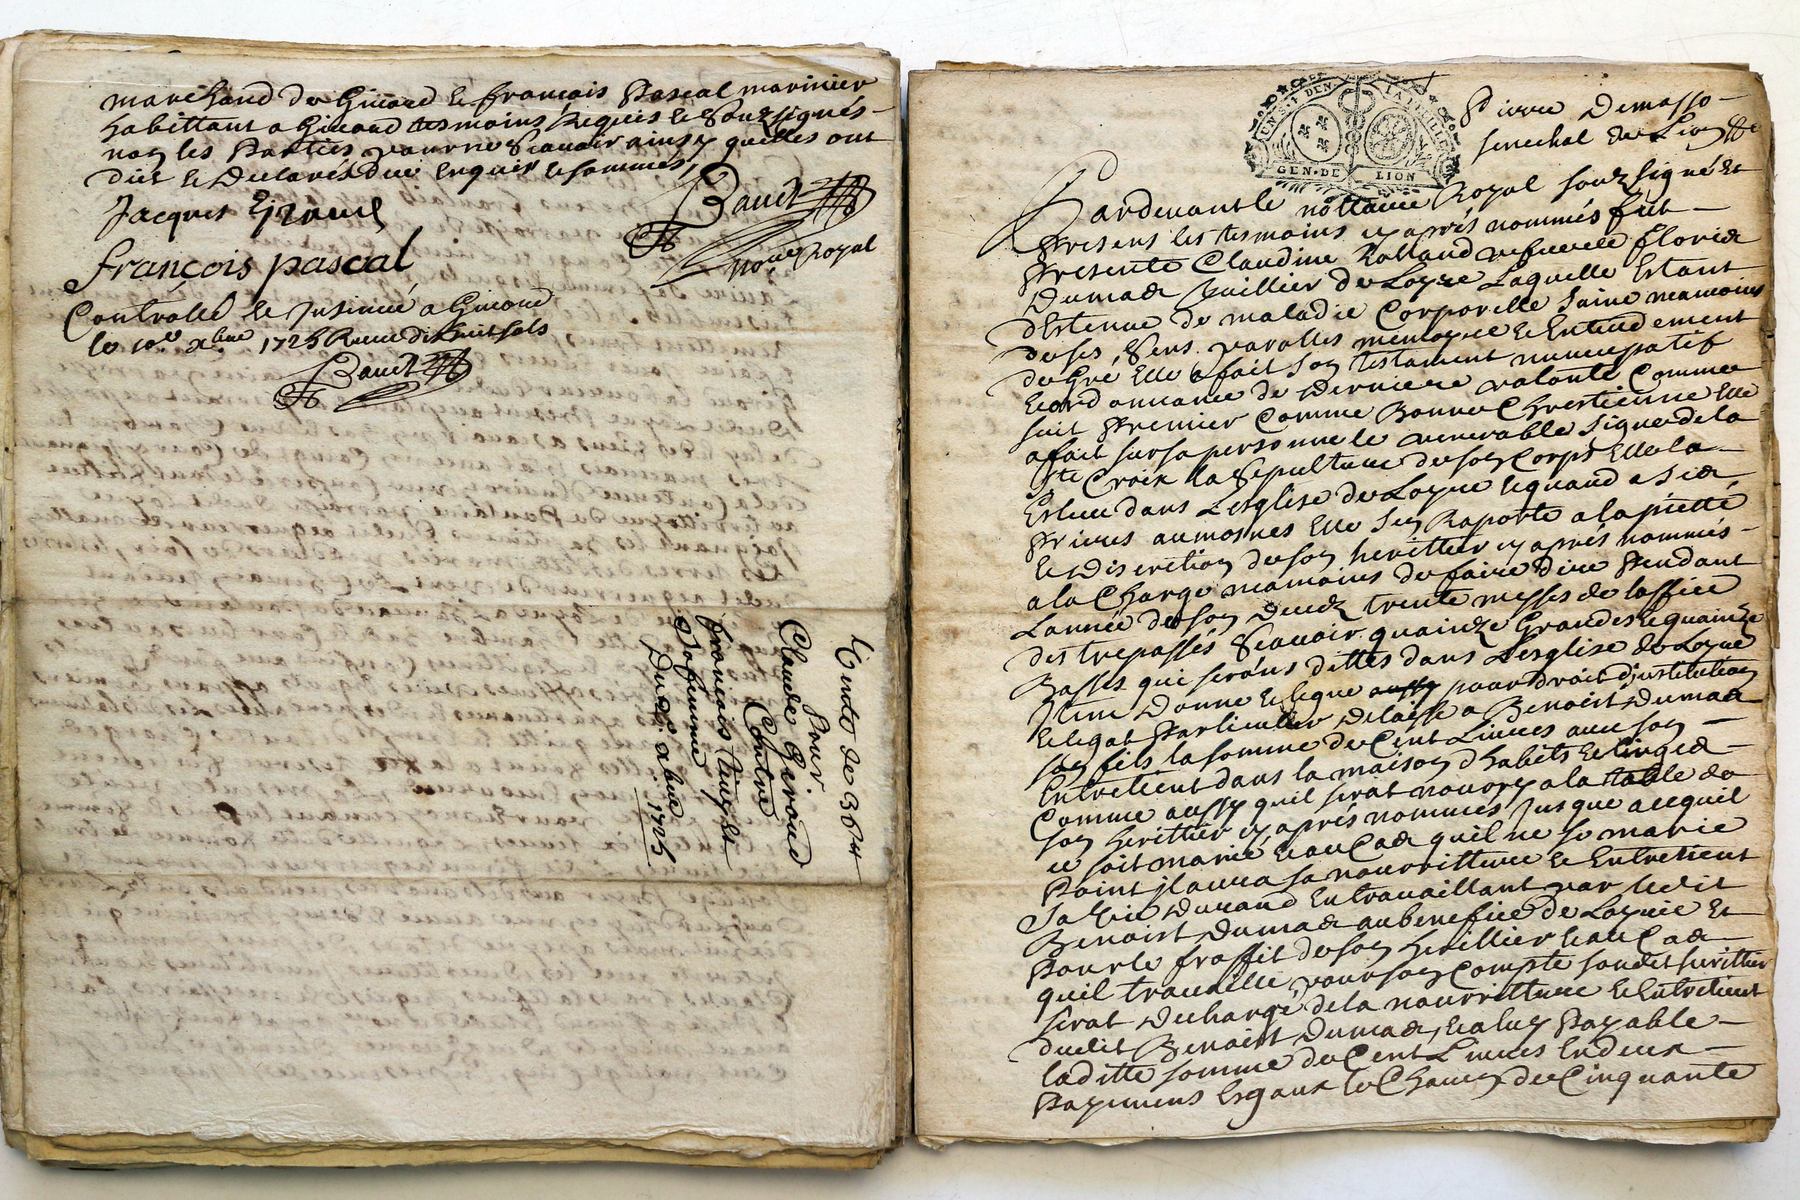 marchand de Giuord & françois Pascal marinier
habittant a Giuord tesmoins Requis & Soubzsignés
non les Parties pour ne Scauoir ainsy quelles ont
dict & Declaré de ce Enquis & sommés
Jacques
Baudt
françois pascal
no.re Royal
Controllé & Insinué a Giuord
le 10.e xbre 1725 Receu dix huit sols
Baudt
Vente de 36 ₶
Pour
Claude Giroud
Contre
françois
Du xbre 1725
GEN·DE LION
Pierre Demasso
senechal de Lion
Pardeuant le nottaire Royal soubzsigné Et
Presens les tesmoins cy aprés nommés fut
Presente Claudine Rolland vefue de
Dumas de Loyre Laquelle Estant
destenue de maladie Corporelle Saine neamoins
de ses Sens parolles memoyre & Entendement
de Gré Elle a fait son testament nuncupatif
& ordonnance de Derniere volonté Comme
suit Premier Comme Bonne Chrestienne Elle
a fait sur sa personne le venerable Signe de la
Ste Croix la Sepulture de son Corps Elle la
Esleue dans Lesglise de Loyre & quand a Ses
Prieres aumosnes Elle Sen Raporte a la pietté
& Discretion de son herittier cy aprés nommés
a la Charge neamoins de faire dire Pendant
Lannée de son Decedz trente messes de loffice
des trepassés Scauoir quainze Grandes & quainze
Basses qui serons dittes dans Lesglise de Loyre
Item Donne & legue pour droit dinstitution
& legat Particulier Delaisse a Benoist Dumas
son fils la somme de Cent Liures auec son
Entretient dans la maison dhabits & linges
Comme aussy quil serat nourry a la table de
son herittier cy aprés nommés Jusque a cequil
ce soit marié & au Cas quil ne se marie
Point il aura sa nourritture & Entretient
Sa Vie Durand En trauaillant par ledit
Benoist Dumas au benefice de Loyrie Et
Pour le proffit de son herittier & au Cas
quil trauaille pour son Compte sondit herittier
serat dechargé de la nourritture & Entretient
dudit Benoist Dumas, & a luy Payable
laditte somme de Cent Liures En deux
Payemens Esgaux & Chacun de Cinquante